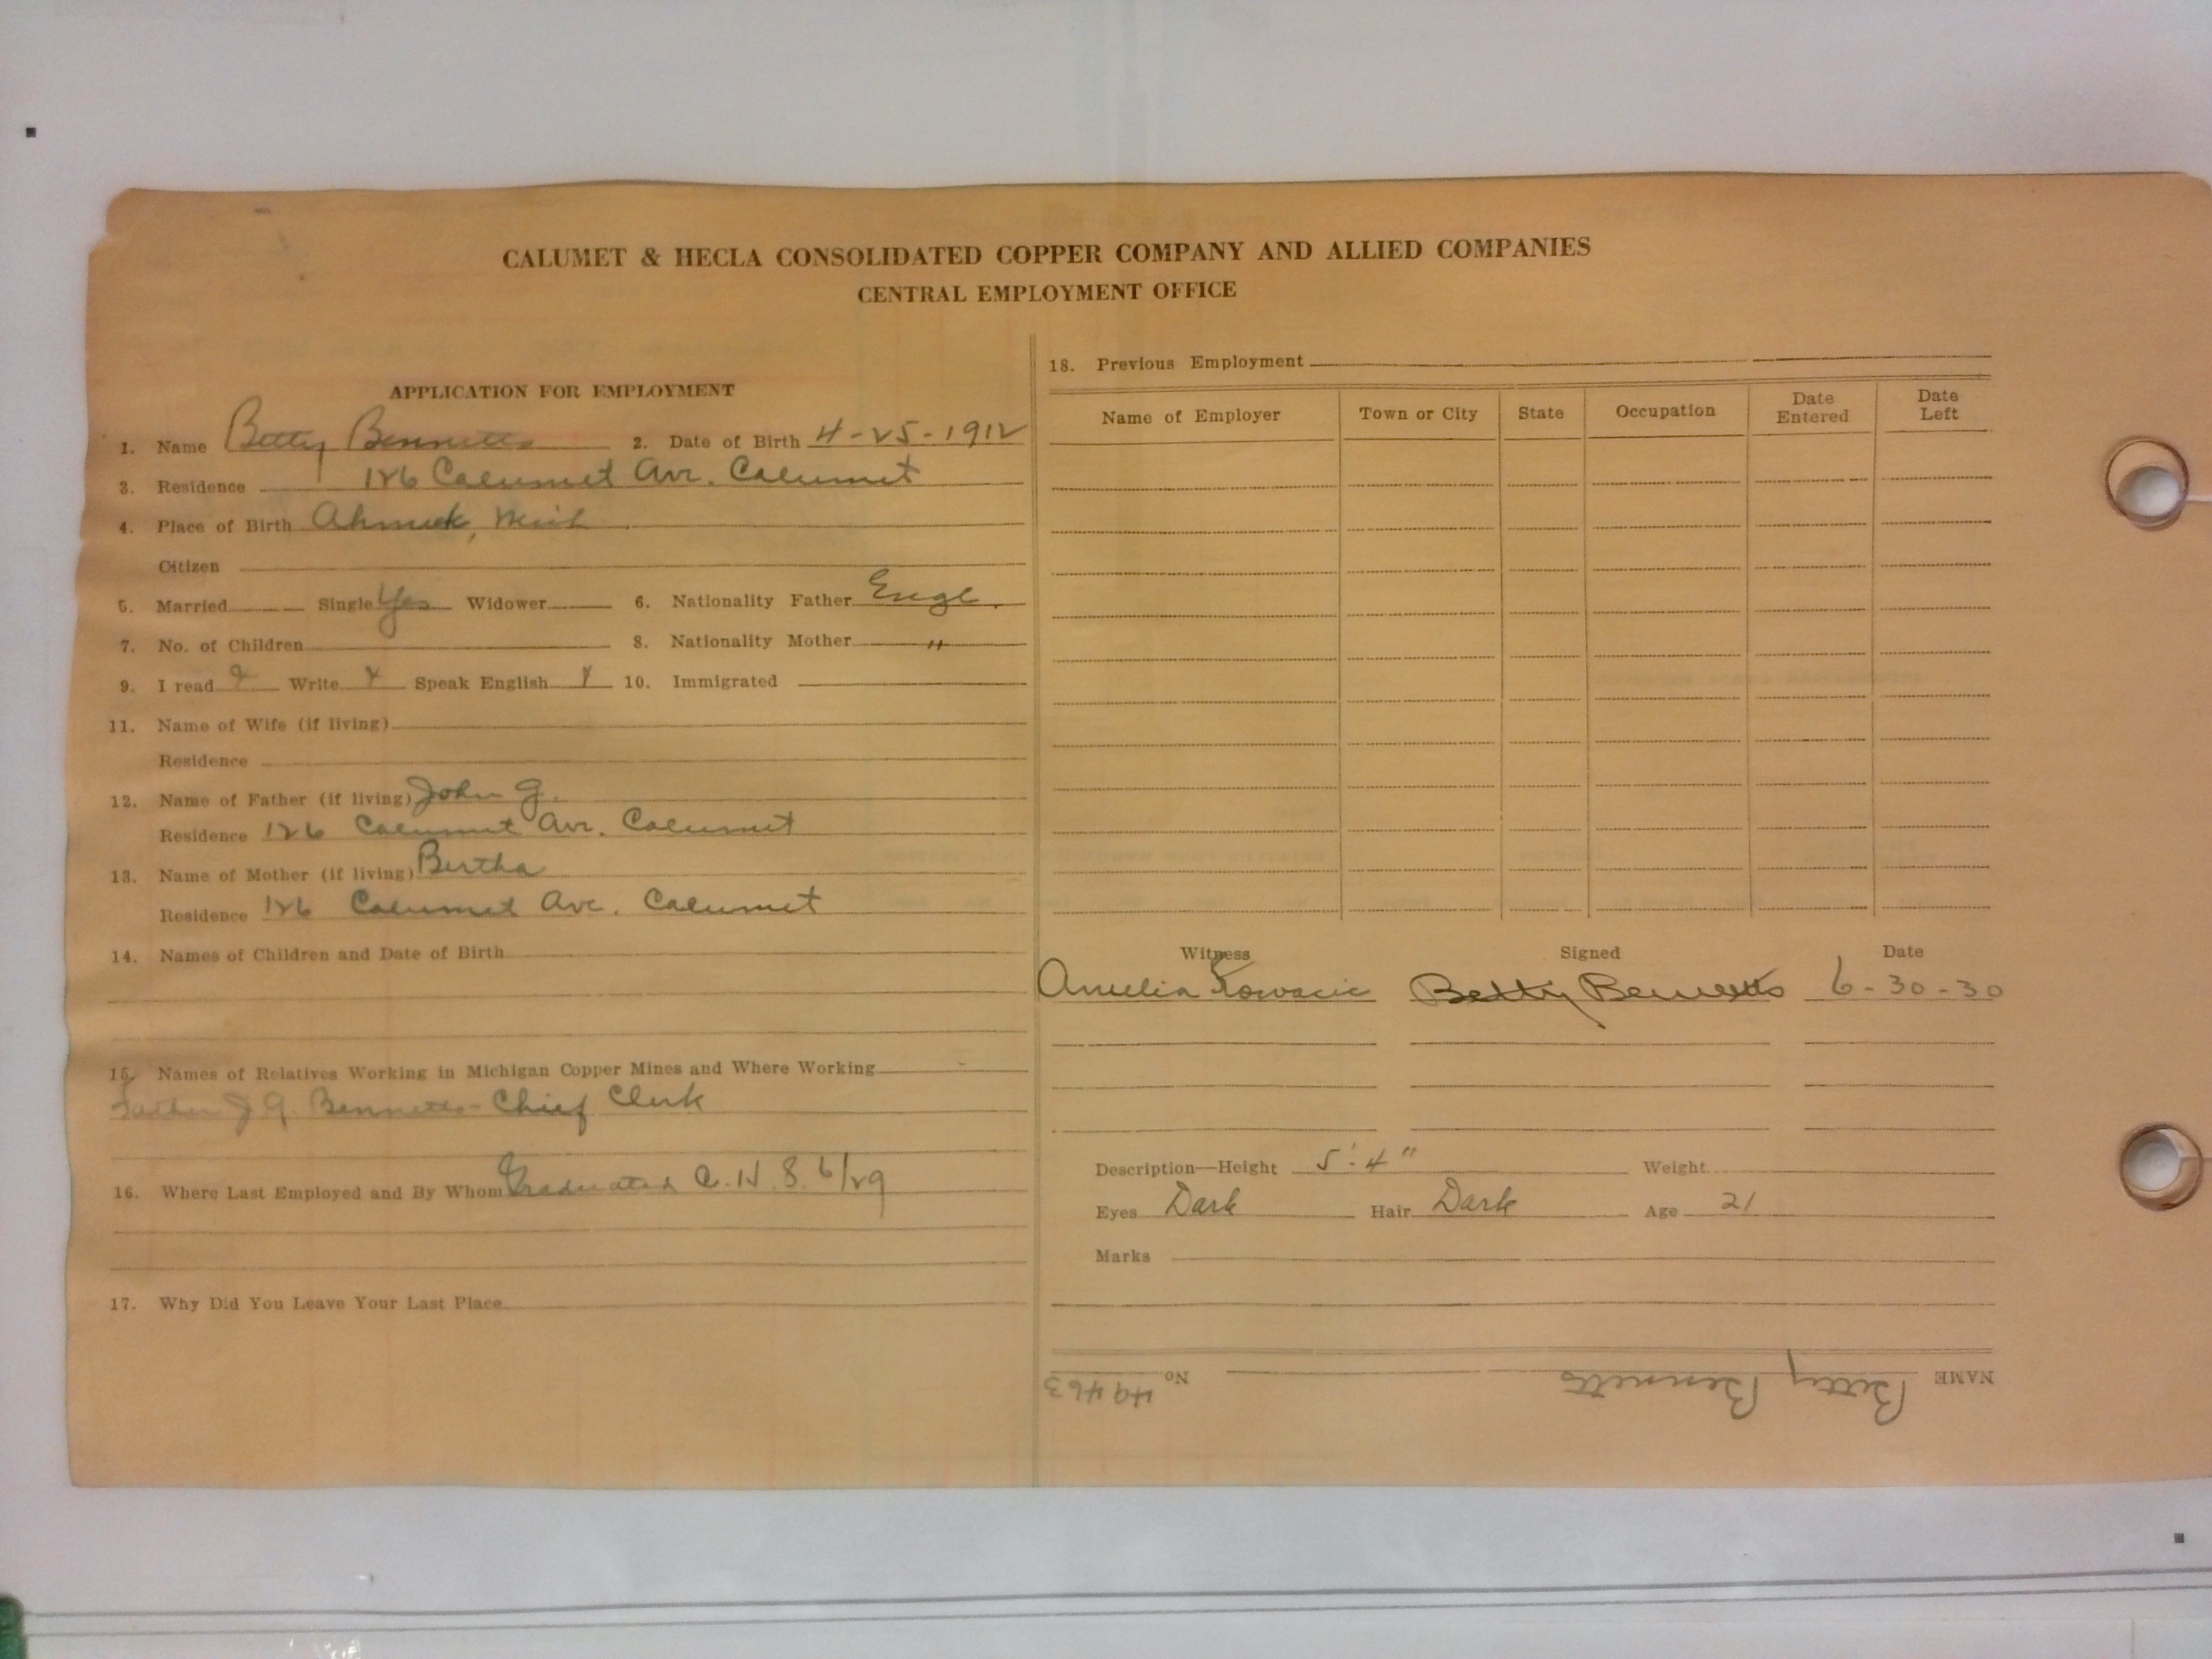 CALUMET & HECLA CONSOLIDATED COPPER COMPANY AND ALLIED COMPANIES
CENTRAL EMPLOYMENT OFFICE
APPLICATION FOR EMPLOYMENT
1. Name Betty Bennetts 2. Date of Birth 4-25-1912
3. Residence 126 Calumet Ave. Calumet
4. Place of Birth Ahmeek, Mich
Citizen
5. Married Single Yes Widower 6. Nationality Father Engl.
7. No. of Children 8. Nationality Mother "
9. I read Y Write Y Speak English Y 10. Immigrated
11. Name of Wife (if living)
Residence
12. Name of Father (if living) John G.
Residence 126 Calumet Ave. Calumet
13. Name of Mother (if living) Bertha
Residence 126 Calumet Ave. Calumet
14. Names of Children and Date of Birth
15. Names of Relatives Working in Michigan Copper Mines and Where Working
Father J G. Bennetts - Chief Clerk
16. Where Last Employed and By Whom Graduated C. H. S. 6/29
17. Why Did You Leave Your Last Place
18. Previous Employment
Name of Employer Town or City State Occupation Date Entered Date Left
Witness Signed Date
Amelia Kovacic Betty Bennetts 6-30-30
Description—Height 5'-4" Weight
Eyes Dark Hair Dark Age 21
Marks
NAME Betty Bennetts No. 49463